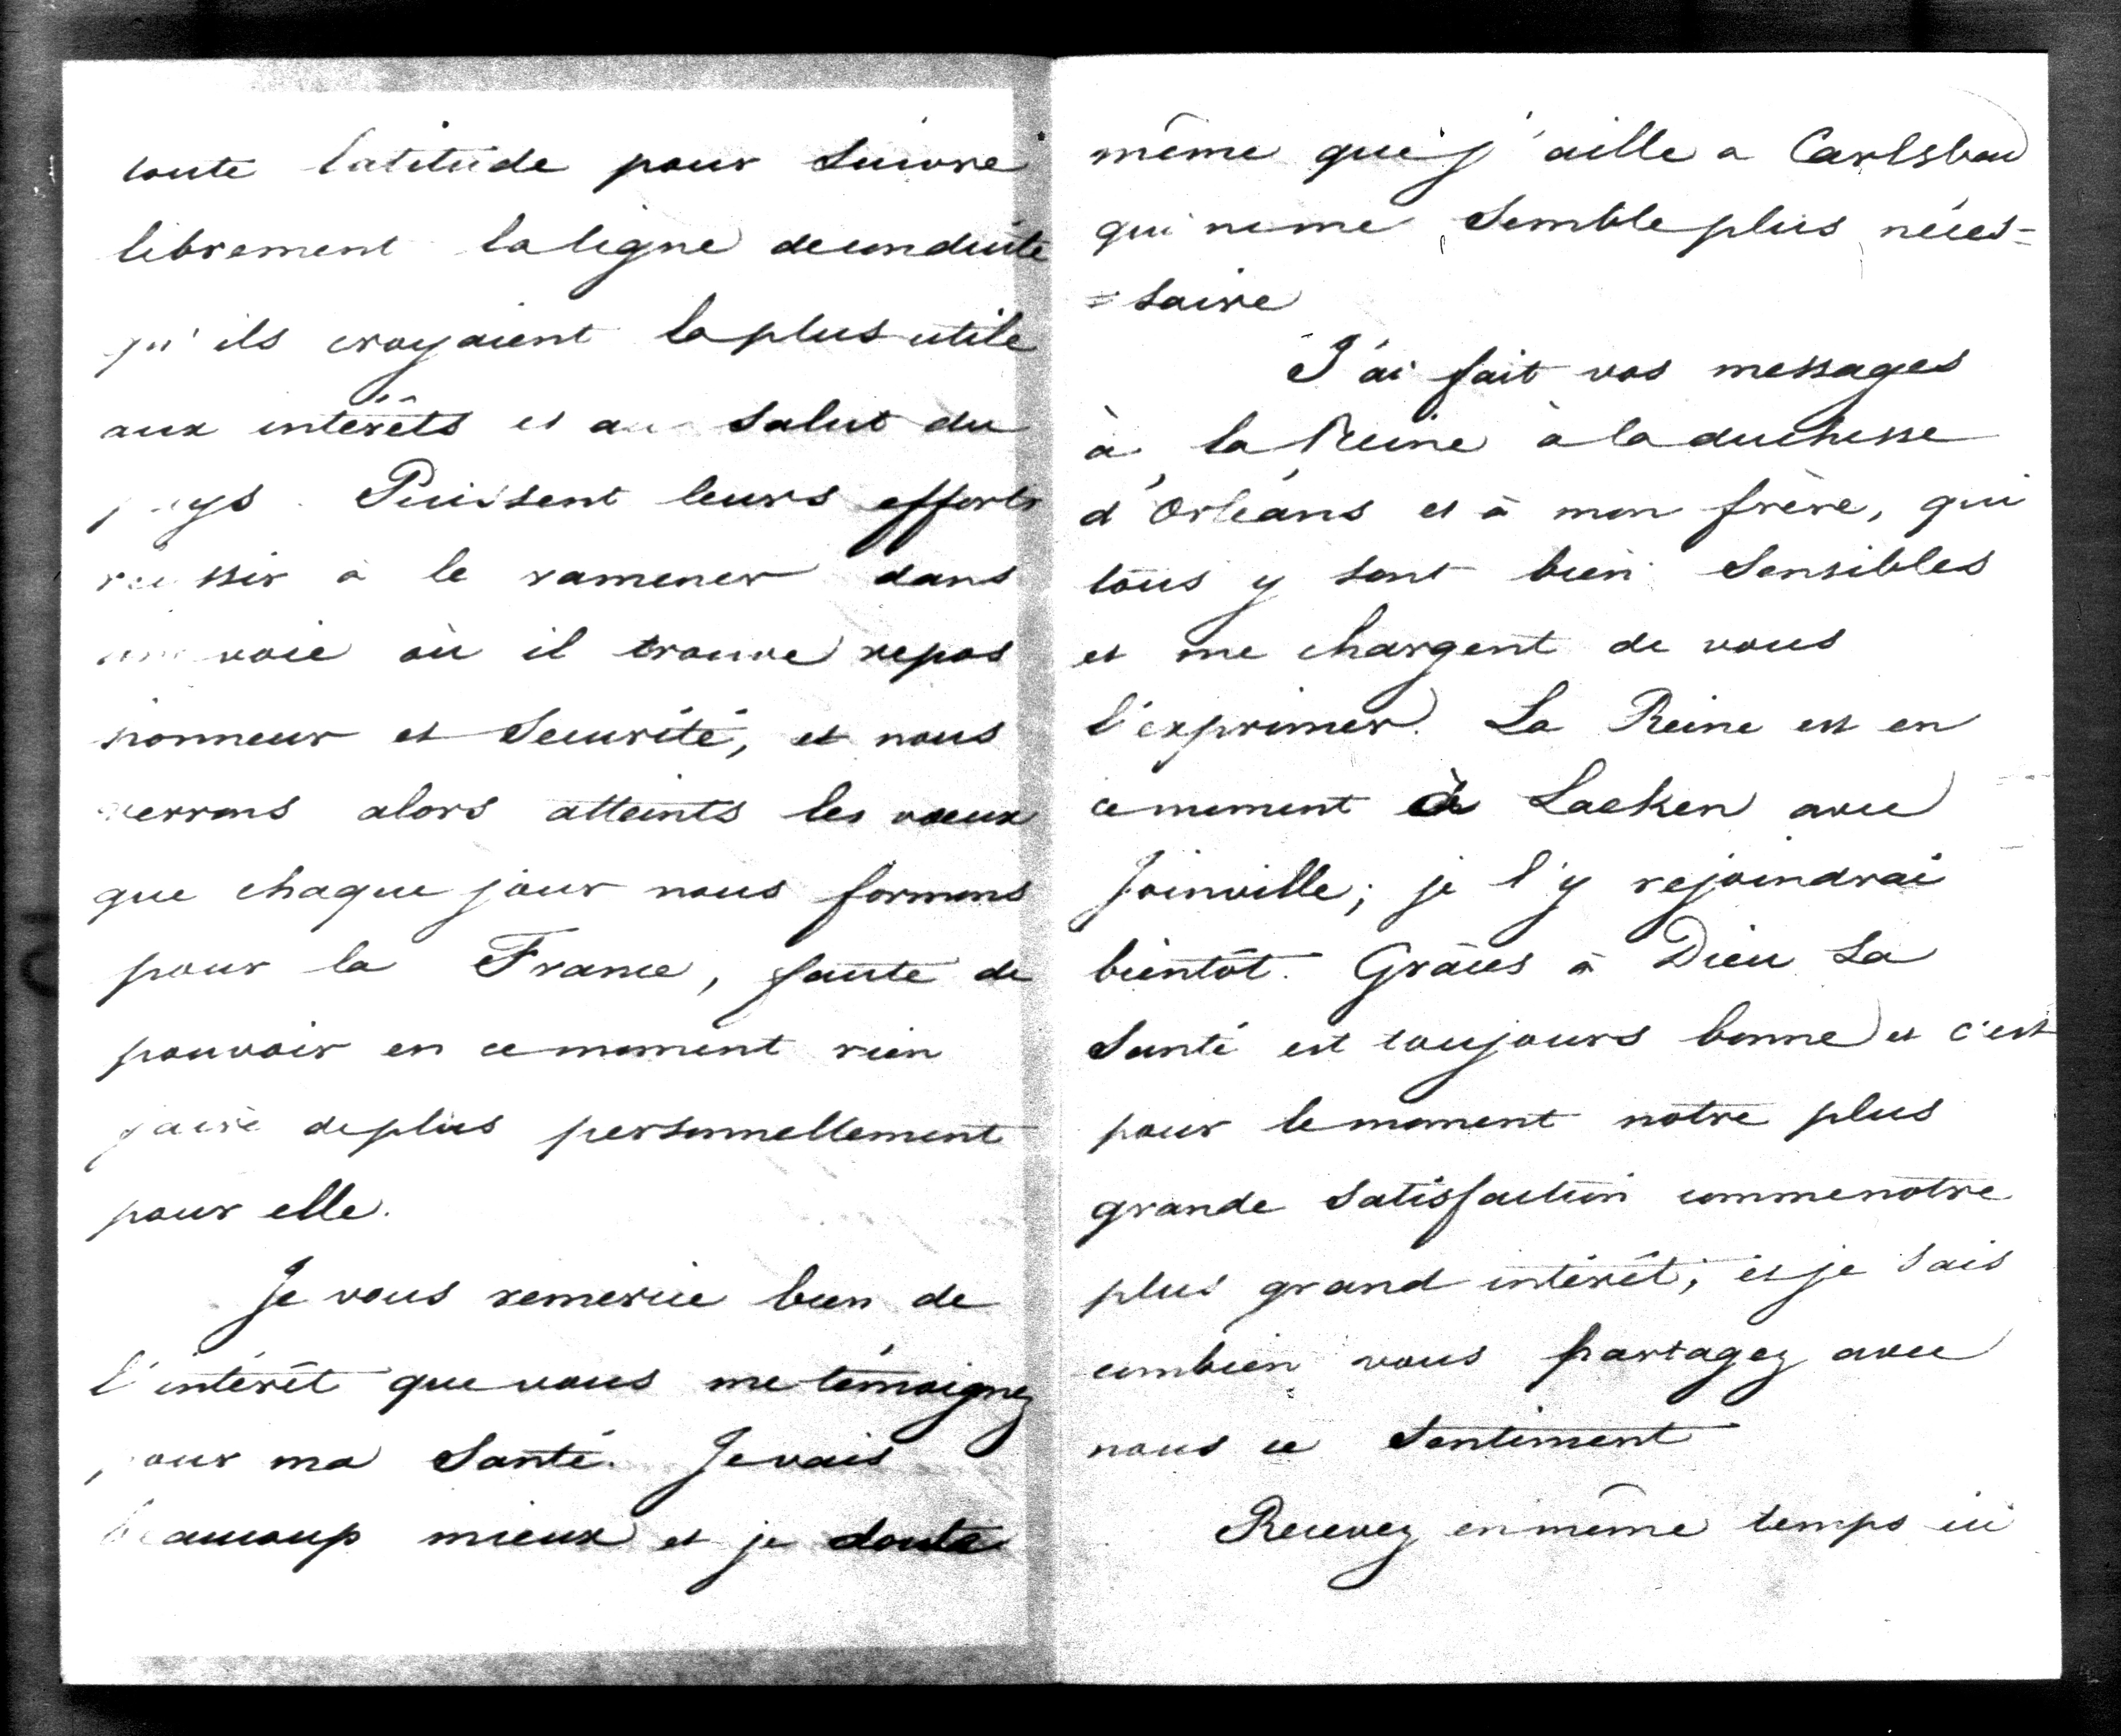 toute latitude pour suivre
librement la ligne de conduite
qu'ils croyaient la plus utile
aux intérêts et au salut du
pays. Puissent leurs efforts
réussir à le ramener dans
une voie où il trouve repos
honneur et sécurité, et nous
verrons alors atteints les vœux
que chaque jour nous formons
pour la France, faute de
pouvoir en ce moment rien
faire de plus personnellement
pour elle.
Je vous remercie bien de
l'intérêt que vous me témoignez
pour ma santé. Je vais
beaucoup mieux et je doute
même que j'aille à Carlsbad
qui ne me semble plus néces=
=saire
J'ai fait vos messages
à la Reine à la duchesse
d'Orléans et à mon frère, qui
tous y sont bien sensibles
et me chargent de vous
l'exprimer. La Reine est en
ce moment à Laeken avec
Joinville; je l'y rejoindrai
bientôt. Grâces à Dieu sa
santé est toujours bonne et c'est
pour le moment notre plus
grande satisfaction comme notre
plus grand intérêt; et je sais
combien vous partagez avec
nous ce sentiment
Recevez en même temps ici